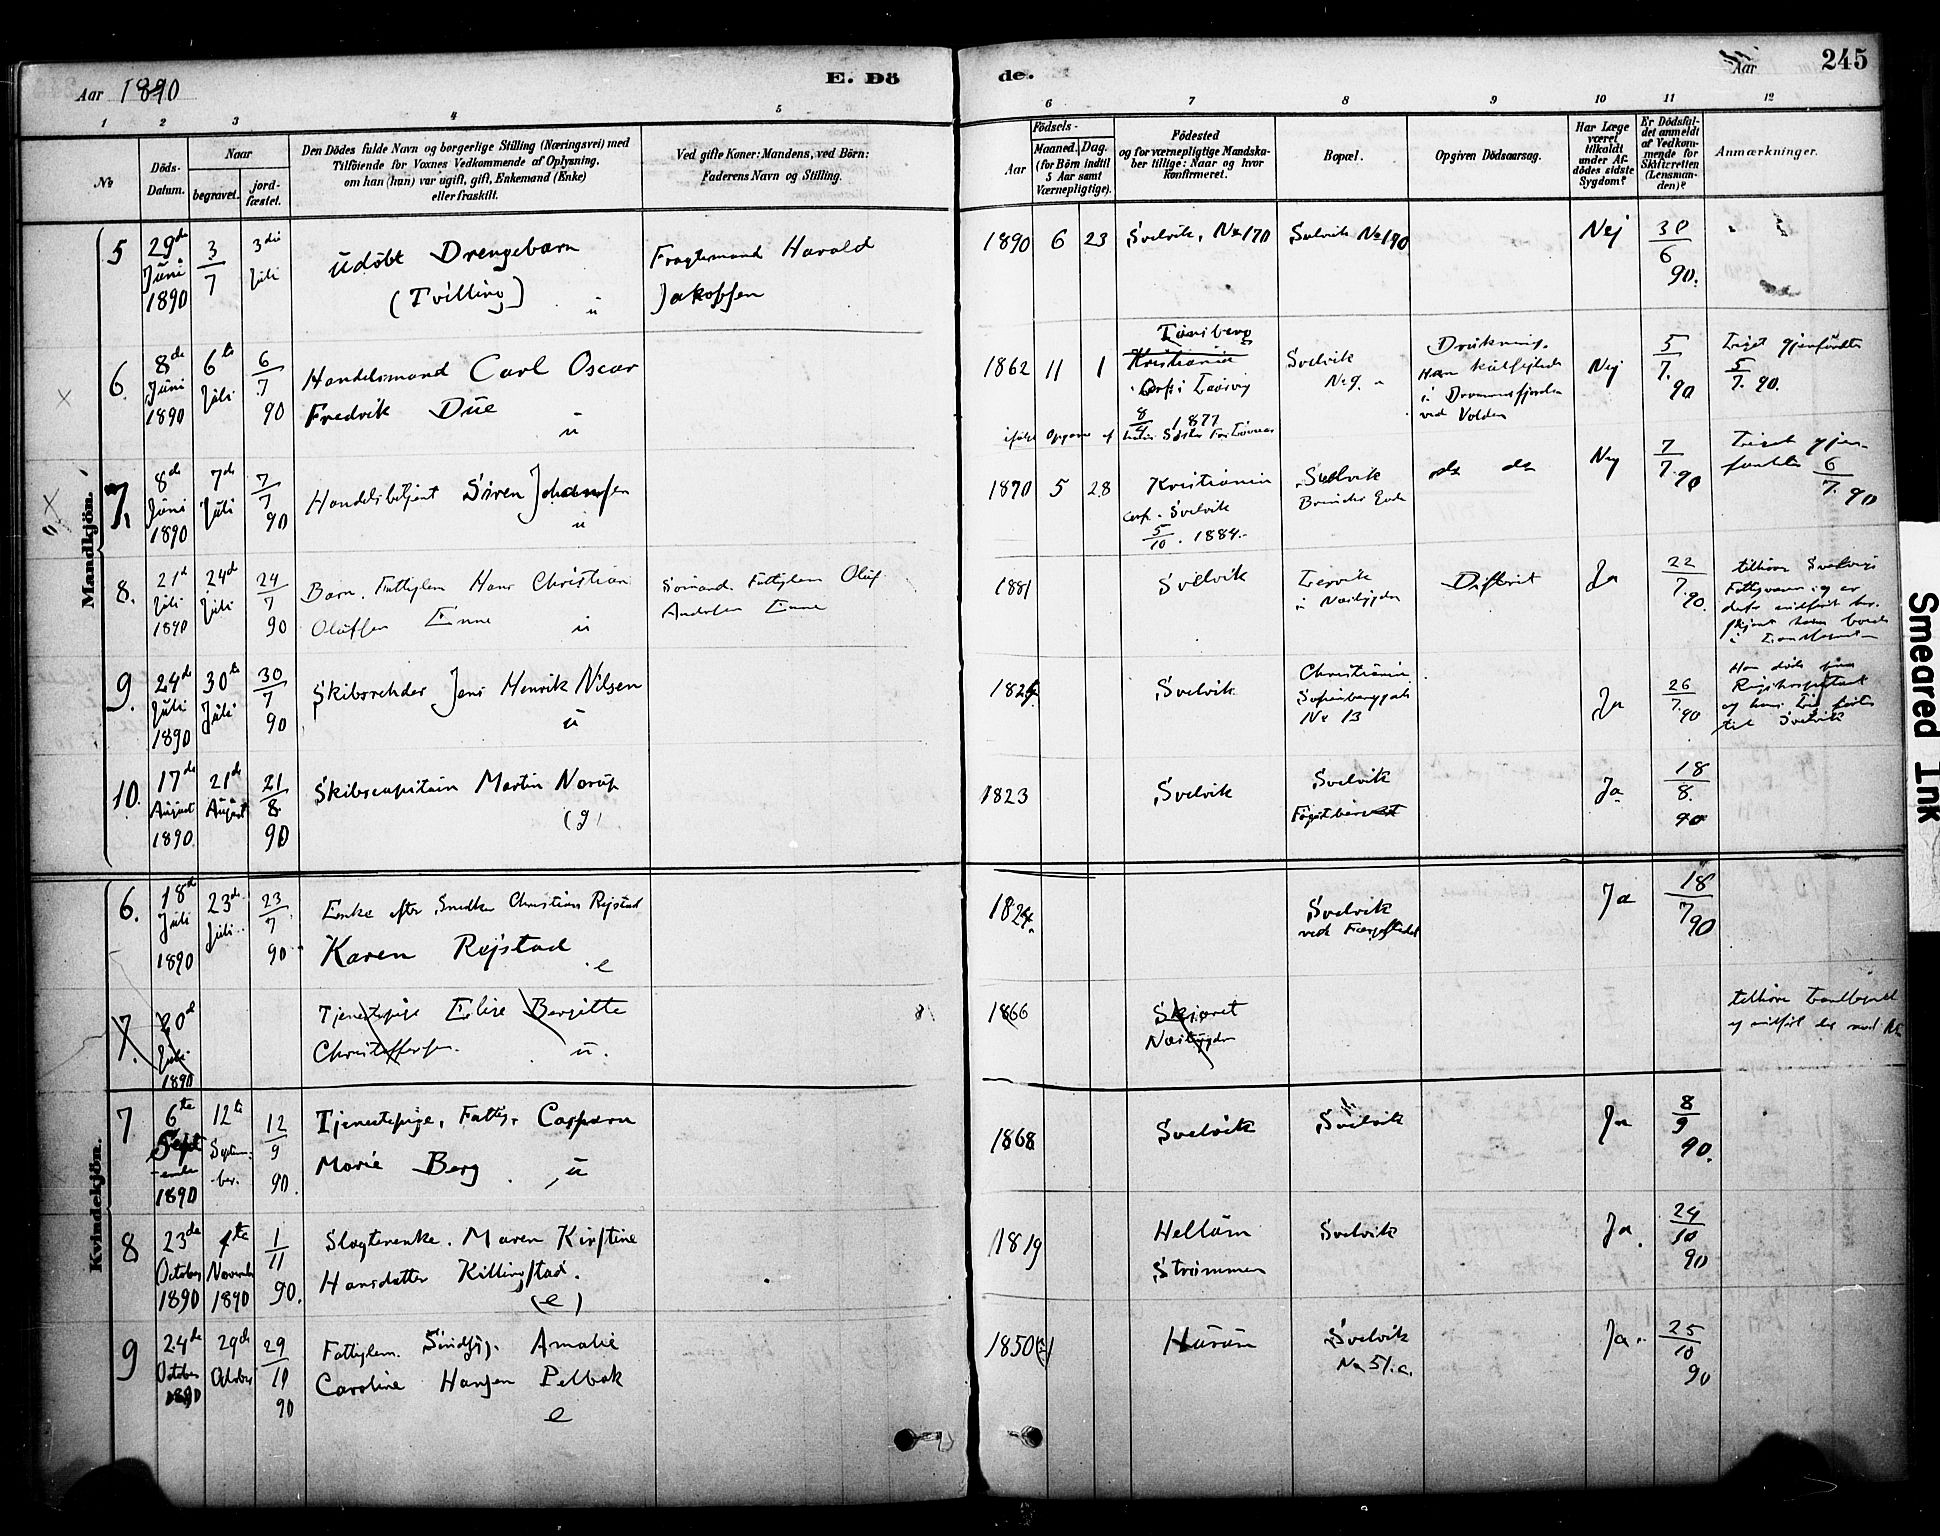 Aar 1890
E. Dö
de.
Aar
245
1 2 3 4 5 6 7 8 9 10 11 12
№
Döds-
Datum.
Naar
begravet.
jord-
fæstet.
Den Dödes fulde Navn og borgerlige Stilling (Næringsvei) med
Tilföiende for Voxnes Vedkommende af Oplysning,
om han (hun) var ugift, gift, Enkemand (Enke)
eller fraskilt.
Ved gifte Koner: Mandens, ved Börn:
Faderens Navn og Stilling.
Födsels-
Aar
Maaned.
Dag.
(for Börn indtil
5 Aar samt
Værnepligtige).
Födested
og for værnepligtige Mandska-
ber tillige: Naar og hvor
konfirmeret.
Bopæl.
Opgiven Dödsaarsag.
Har Læge
været
tilkaldt
under Af-
dödes sidste
Sygdom?
Er Dödsfal-
det anmeldt
af Vedkom-
mende for
Skifteretten
(Lensman-
den)?
Anmærkninger.
Mandkjön.
5
29de Juni 1890
3/7
3die Juli
udöbt Drengebarn
(Tvilling) u
Fragtemand Harald
Jakobsen
1890 6 23
Svelvik, No 170
Svelvik No 170
Nej
30/6 90.
6.
8de Juni 1890
6te Juli
6/7 90
Handelsmand Carl Oscar
Fredrik Due u
1862 11 1
Tönsberg
Kristiania
8/4 1877
Svelvik
No 9.
Drukning.
i Drammensfjorden
ved Volden
Nej
5/7. 90
Liget gjenfundet
5/7. 90.
7.
8de Juni 1890
7de Juli
7/7 90
Handelsbetjent Sören Johansen
u
1870 5 28
Kristiania
Conf. Svelvik
5/10. 1884.
Svelvik
do do
Nej
7/7. 90
Liget gjen-
fundet 6/7. 90
8.
21de Juli 1890
24de Juli
24/7 90
Barn. Fattiglem Hans Christian
Olufsen Enne u
Sömand. Fattiglem Oluf
Andersen Enne
1881
Svelvik
Lervik
i Nesbygden
Difterit
Ja
22/7. 90.
tilhörer Svelvigs
9.
24de Juli 1890
30te Juli
30/7 90
Skibsrehder Jens Henrik Nilsen
u
1824.
Svelvik
Christiania
Sofienberggade
No 13
Ja
26/7. 90
Han döde paa
Rigshospitalet
og hans Lig förtes
til Svelvik
10.
17de August 1890
21de August
21/8 90
Skibscapitain Martin Norup
(g)
1823
Svelvik
Svelvik
Ja
18/8. 90
Kvindekjön.
6.
18de Juli 1890
23de Juli
23/7 90
Enke efter Snedker Christian Rejstad
Karen Rejstad e
1824.
Svelvik
ved Færgestedet
Ja
18/7 90
7.
20de Juli 1890
Tjenestepige Elise Bergitte
Christoffersen. u.
1866
Skjæret
Nesbygden
7
6te September 1890
12te September.
12/9 90.
Tjenestepige, Fattig. Caspara
Marie Berg u
1868
Svelvik
Svelvik
Ja
8/9 90.
8
23de October 1890
1te Novemb 1890
1/11 90.
Slagterenke. Maren Kirstine
Hansdatter Killingstad.
(e)
1819
Hellum
Strömmen
Svelvik
Ja.
24/10 90
9
24de October 1890
29de October
29/10 90
Fattiglem. Amalie
Caroline Hansen Pelbak
e
1850(?)
Hurum
Svelvik
No 51.a.
Ja.
25/10 90
Smeared Ink